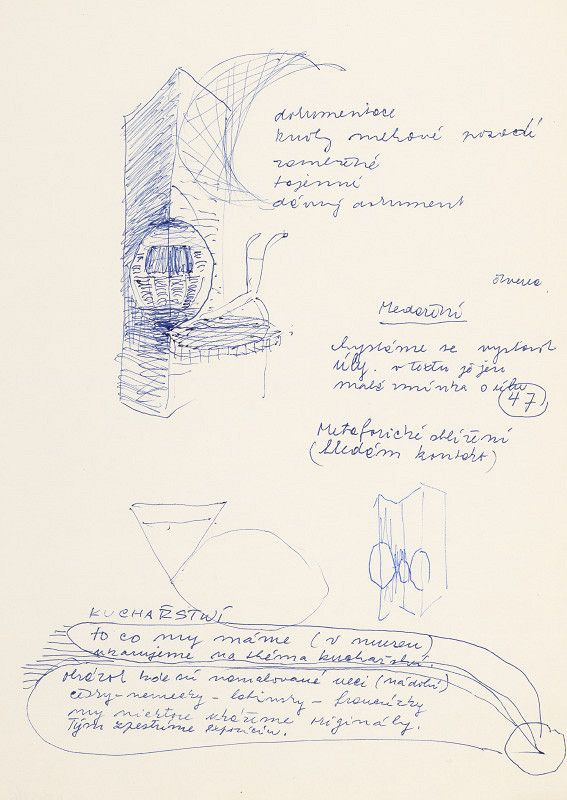 dokumentace
kruhy mehové pozadí
rozměrné
tajemné
dávný dokument
Medařství
chystáme se vystavit
úly. v textu je jen
malá zmínka o úlu
47
Metaforické sblížení
(hledám kontakt)
KUCHAŘSTVÍ
to co my máme (v museu)
ukazujeme na théma kuchařství.
obrázek kde sú namalované veci (nádobí)
česky-nemecky-latinsky-francúzky
my niektore ukážeme originály.
Tým zpestríme expozíciu.